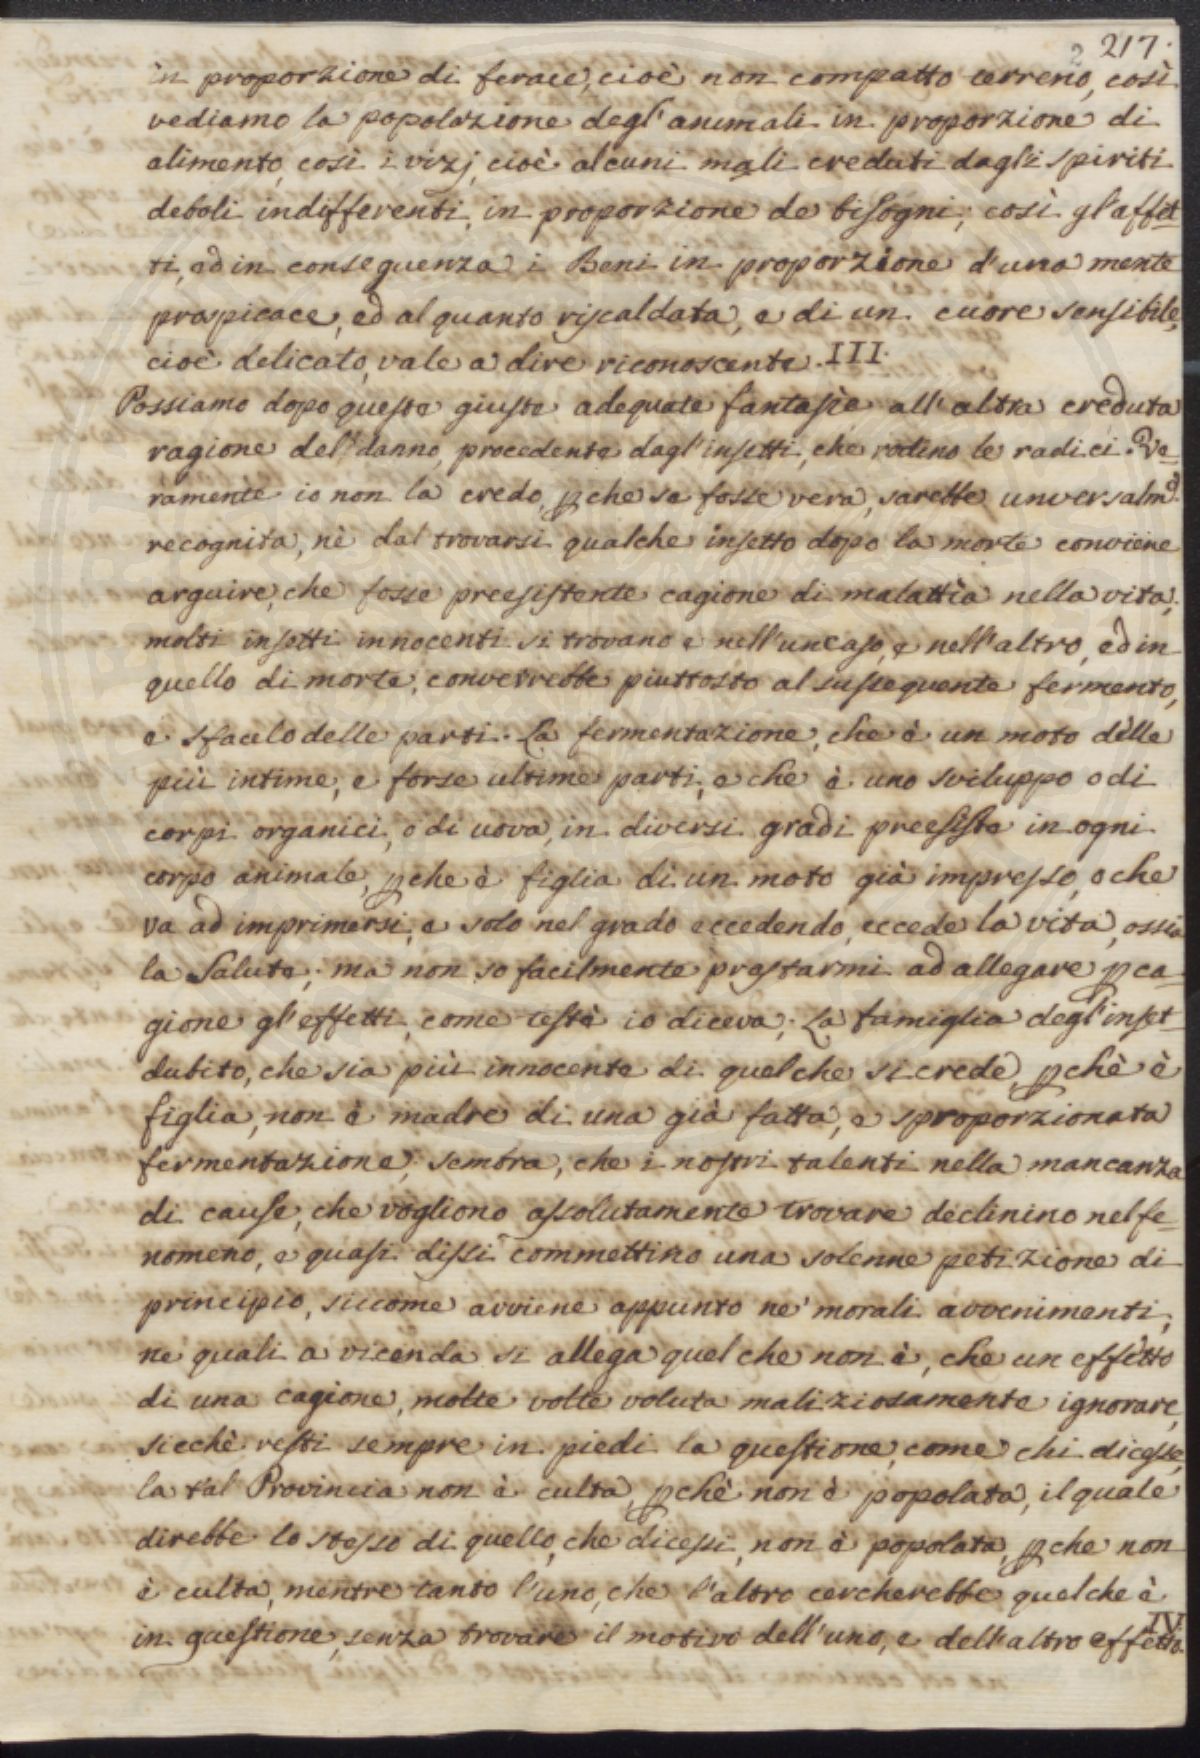 2 217.
in proporzione di ferace, cioè non compatto terreno, così
vediamo la popolazione degl'animali in proporzione di
alimento, così i vizj, cioè alcuni mali creduti dagli spiriti
deboli indifferenti, in proporzione de bisogni, così gl'affet-
ti, ed in conseguenza i Beni in proporzione d'una mente
prospicace, ed al quanto riscaldata, e di un cuore sensibile,
cioè delicato, vale a dire riconoscente. III.
Possiamo dopo queste giuste adequate fantasìe all'altra creduta
ragione del danno, procedente dagl'insetti, che rodino le radici. Ve-
ramente io non la credo, pche se fosse vera, sarebbe universalmẽ
recognita, nè dal trovarsi qualche insetto dopo la morte conviene
arguire, che fosse preesistente cagione di malattìa nella vita;
molti insetti innocenti si trovano e nell'un caso, e nell'altro, ed in
quello di morte, converrebbe piuttosto al susseguente fermento,
e sfacelo delle parti. La fermentazione, che è un moto delle
più intime, e forse ultime parti, e che è uno sviluppo o di
corpi organici, o di uova, in diversi gradi preesiste in ogni
corpo animale, pche è figlia di un moto già impresso, o che
va ad imprimersi, e solo nel grado eccedendo, eccede la vita, ossia
la Salute; ma non so facilmente prestarmi ad allegare p ca-
gione gl'effetti, come testè io diceva; La famiglia degl'inset-
dubito, che sia più innocente di quel che si crede, pchè è
figlia, non è madre di una già fatta, e sproporzionata
fermentazione; sembra, che i nostri talenti nella mancanza
di cause, che vogliono assolutamente trovare declinino nel fe-
nomeno, e quasi dissi commettino una solenne petizione di
principio, siccome avviene appunto ne' morali avvenimenti,
ne quali a vicenda si allega quel che non è, che un effetto
di una cagione, molte volte voluta maliziosamente ignorare,
sicchè resti sempre in piedi la questione, come chi dicesse,
la tal Provincia non è culta, pchè non è popolata, il quale
direbbe lo stesso di quello, che dicessi, non è popolata, pche non
è culta, mentre tanto l'uno, che l'altro cercherebbe quel che è
in questione, senza trovare il motivo dell'uno, e dell'altro effetto. IV.